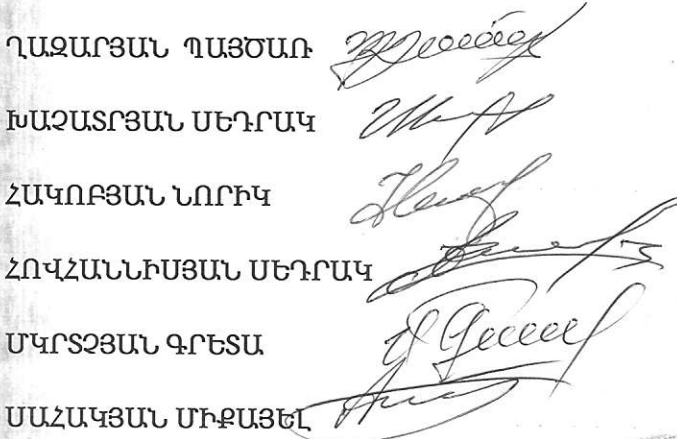 ՂԱԶԱՐՅԱՆ ՊԱՅԾԱՌ
ԽԱՉԱՏՐՅԱՆ ՍԵԴՐԱԿ
ՀԱԿՈԲՅԱՆ ՆՈՐԻԿ
ՀՈՎՀԱՆՆԻՍՅԱՆ ՍԵԴՐԱԿ
ՄԿՐՏՉՅԱՆ ԳՐԵՏԱ
ՍԱՀԱԿՅԱՆ ՄԻՔԱՅԵԼ